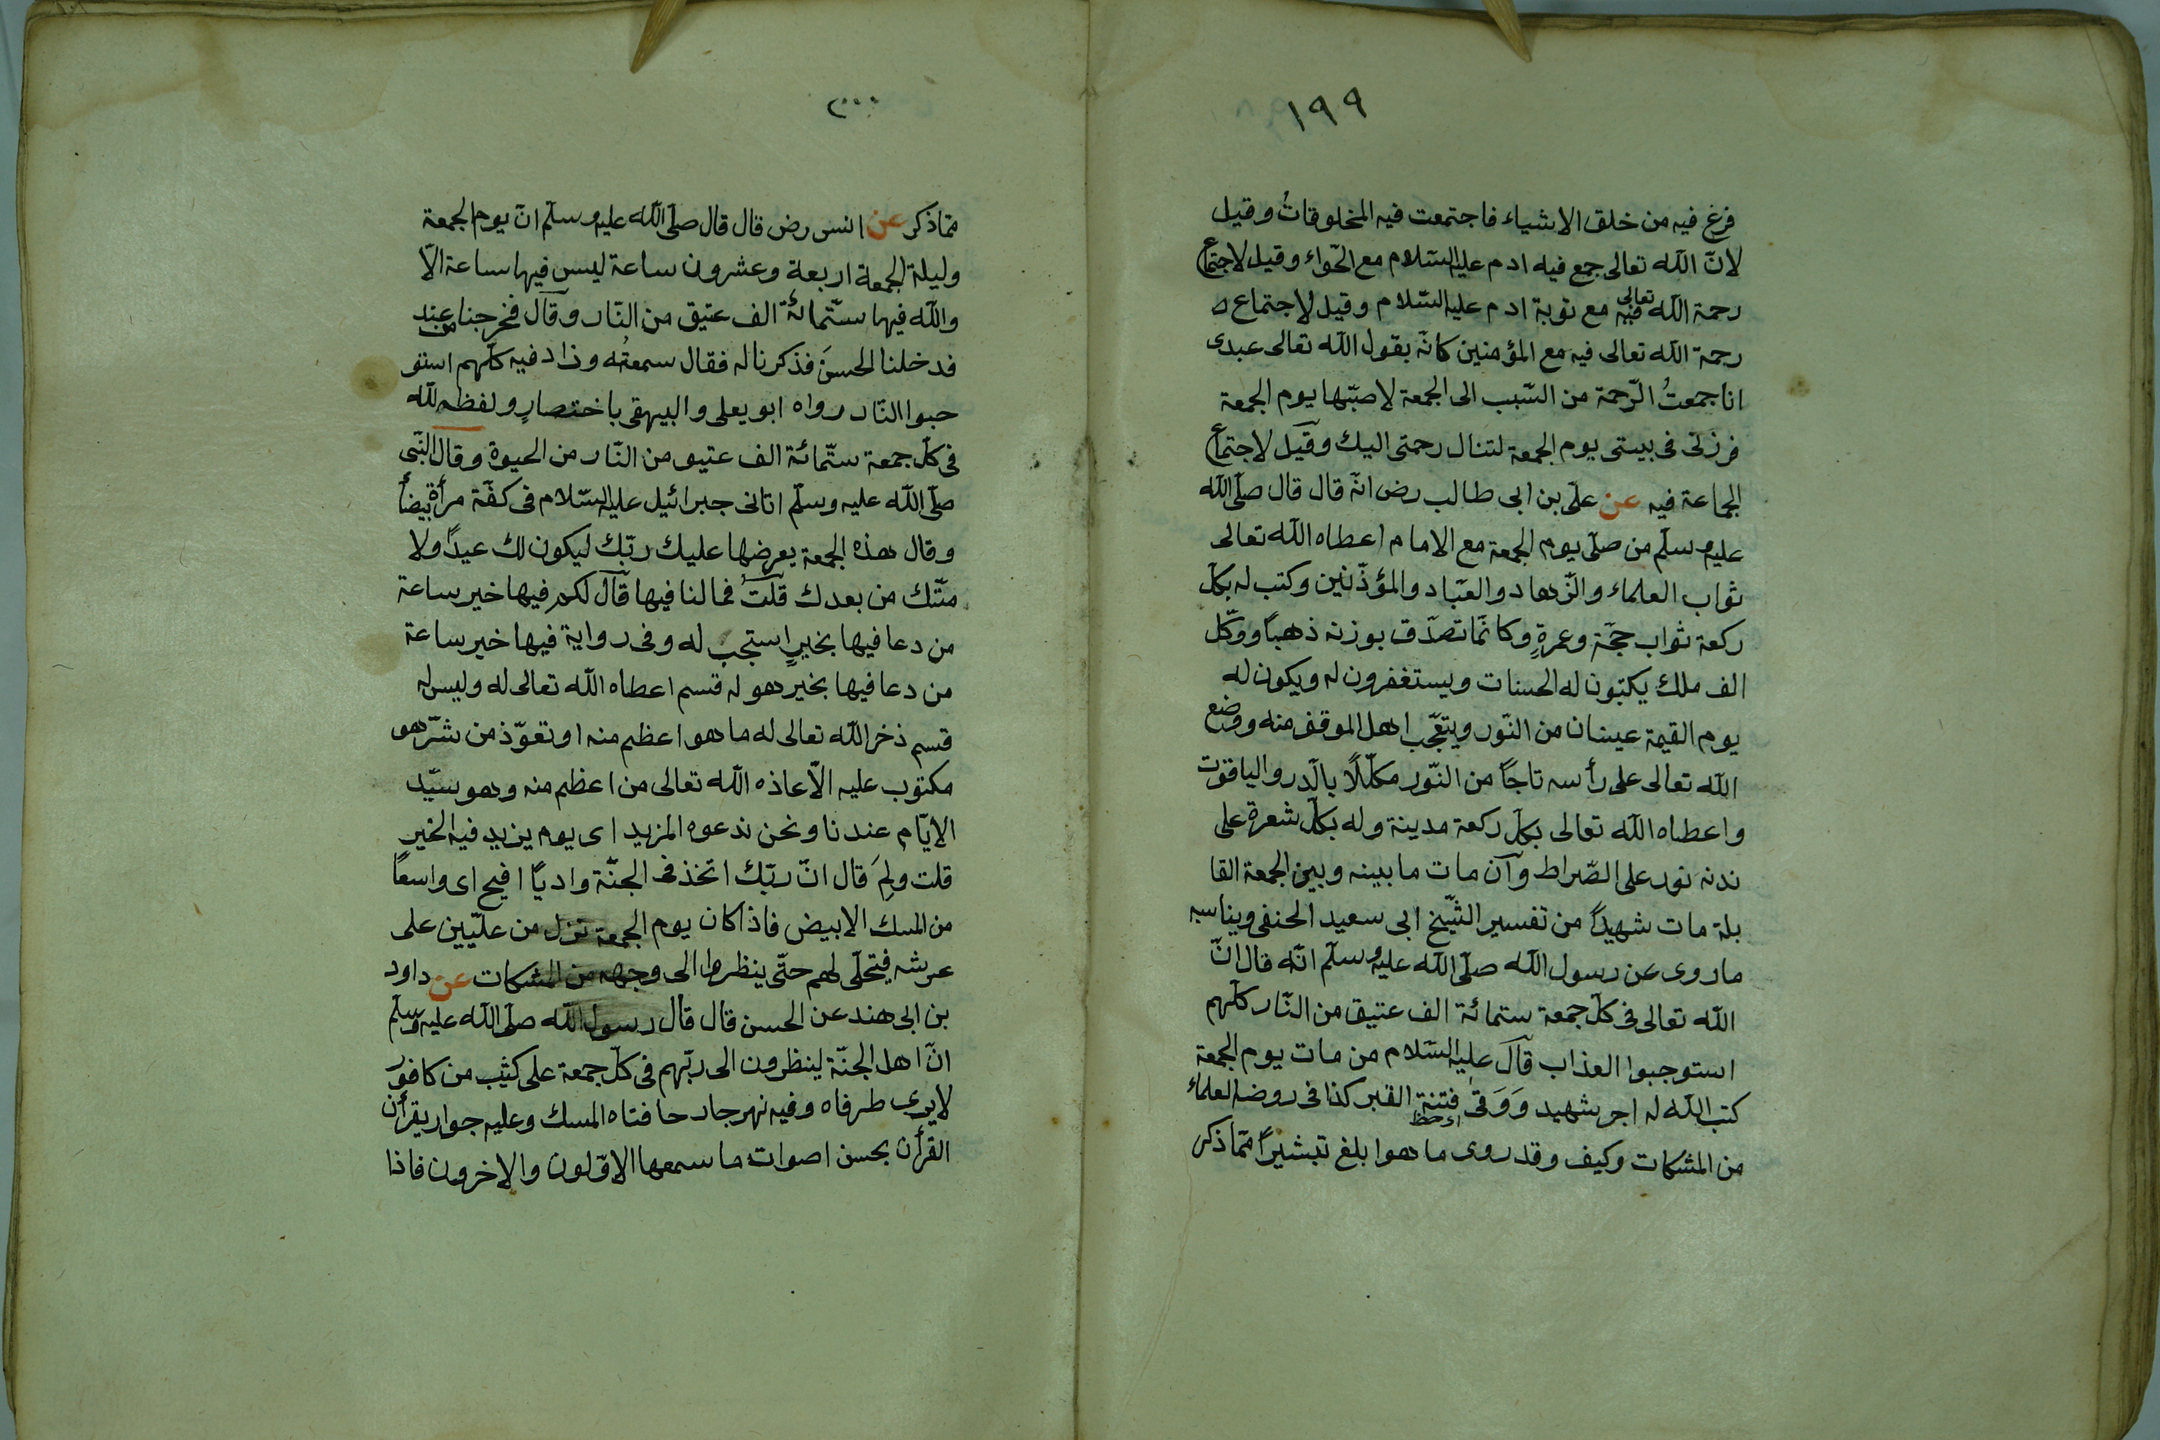 ١٩٩
فرغ فيه من خلق الاشياء فاجتمعت فيه المخلوقاتُ وقيل
لانّ الله تعالى جمع فيه ادم عليه السّلام مع الحّواء وقيل لاجتماع
رحمة الله تعالى فيه مع توبة ادم عليه السّلام وقيل لاجتماع
رحمة الله تعالى فيه مع المؤمنين كانّه يقول الله تعالى عبدى
انا جمعتُ الرّحمة من السّبب الى الجمعة لاصبّها يوم الجمعة
فرزنى فى بيتى يوم الجمعة لتنال رحمتى اليك وقيل لاجتماع
الجماعة فيه عن علىّ بن ابى طالب رض انّه قال قال صلّى الله
عليه وسلّم من صلّى يوم الجمعة مع الامام اعطاه الله تعالى
ثواب العلماء والزّهاد والعبّاد والمؤذّنين وكتب له بكلّ
ركعة ثواب حجّة وعمرةٍ وكانّما تصدّق بوزنه ذهبًا ووكّل
الف ملك يكتبون له الحسنات ويستغفرون له ويكون له
يوم القيمة عينان من النّور ويتعّجب اهل الموقف منه ووضع
الله تعالى على رأسه تاجًا من النّور مكلّلًا بالّدر والياقوت
واعطاه الله تعالى بكلّ ركعة مدينة وله بكلّ شعرة على
ندنه نور على الصّراط وآن مات ما بينه وبين الجمعة القا
بلة مات شهيدًا من تفسير الشّيخ ابى سعيد الحنفى ويناسبه
ما روى عن رسول الله صلّى الله عليه وسلّم انّه قال انّ
الله تعالى فى كلّ جمعة ستمائة الف عتيق من النّار كلّهم
استوجبوا العذاب قال عليه السّلام من مات يوم الجمعة
كتب الله له اجر شهيد وَوَقى فتنة القبر كذا فى روضة العلماء
من المشكات وكيف وقد روى ما هو ابلغ تبشيرًا ممّا ذكر
٢٠٠
ممّا ذكر عن انس رض قال قال صلّى الله عليه وسلّم انّ يوم الجمعة
وليلة الجمعة اربعة وعشرون ساعة ليس فيها ساعة الّا
والله فيها ستّمائة الف عتيق من النّار وقال فخرجنا من عنده
فدخلنا الحسنَ فذكرنا له فقال سمعتُه وزاد فيه كلّهم استو
جبوا النّار رواه ابو يعلى والبيهقى باختصارٍ ولفظه لله
فى كلّ جمعة ستّمائة الف عتيق من النّار من الحيوة وقال النّبى
صلّى الله عليه وسلّم اتانى جبرائيل عليه السّلام فى كفّة مرأة بيضأ
وقال هذه الجمعة يعرضها عليك ربّك ليكون لك عيدًا ولا
متّك من بعدك قلتُ فما لنا فيها قال لكم فيها خير ساعة
من دعا فيها بخيرٍ استجب له وفى رواية فيها خير ساعة
من دعا فيها بخير هو له قسم اعطاه الله تعالى له وليس له
قسم ذخر الله تعالى له ما هو اعظم منه او تعوّذ من شرّ هو
مكتوب عليه الّا عاذه الله تعالى من اعظم منه وهو سيّد
الايّام عندنا ونحن ندعوه المزيد اى يوم يزيد فيه الخير
قلت ولِمَ قال انّ ربّك اتخذ فى الجنّة واديًا افيح اى واسعًا
من المسك الابيض فاذا كان يوم الجمعة نزل من علّيّين على
عرشه فيتجلّى لهم حتّى ينظروا الى وجهه من المشكات عن داود
بن ابى هند عن الحسن قال قال رسول الله صلّى الله عليه وسلّم
انّ اهل الجنّة لينظرون الى ربّهم فى كلّ جمعة على كثيب من كافور
لا يرى طرفاه وفيه نهر جار حافتاه المسك وعليه جوار يقرأن
القرأن بحسن اصوات ما سمعها الاوّلون والاخرون فاذا